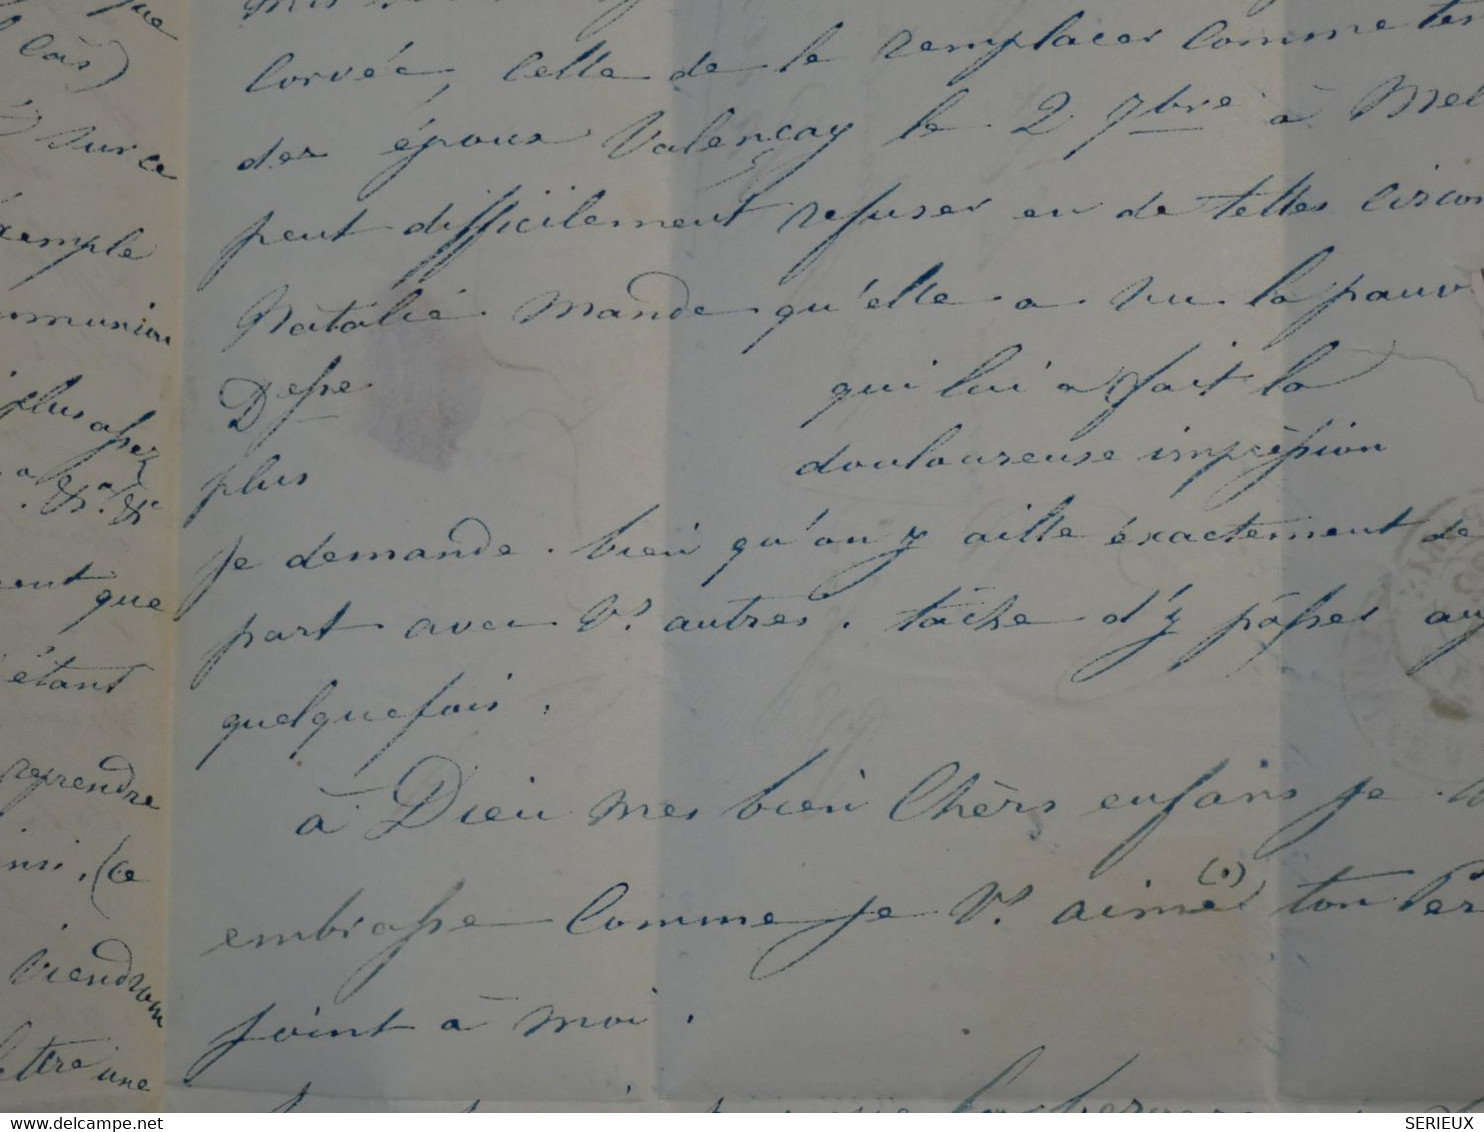 que
cas)
sur ce
exemple
communion
plus assez
que
étant
reprendre
(ce
viendrons
lettre une
corvée, celle de le remplacer comme tem
des époux Valençay le 2 7bre à Mel
peut difficilement refuser en de telles circon
Natalie mande qu'elle a vu la pauv
Desse qui lui a fait la
plus douloureuse impréssion
Je demande. bien qu'on y aille éxactement de
part avec Vs autres. tâche d'y pásser
quelquefois.
à Dieu mes bien Chèrs enfans je
embrasse Comme je Vs aime (1) ton Pèr
joint à moi.
SERIEUX